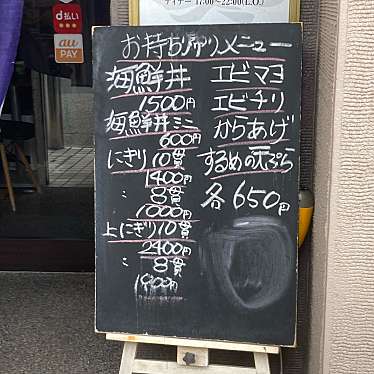 ディナー 17:00～22:00(L.O.)
d払い
au
PAY
お持ち帰りメニュー
海鮮丼
1500円
海鮮丼ミニ
600円
にぎり10貫
1400円
〃 8貫
1000円
上にぎり10貫
2400円
〃 8貫
1900円
エビマヨ
エビチリ
からあげ
するめの天ぷら
各650円